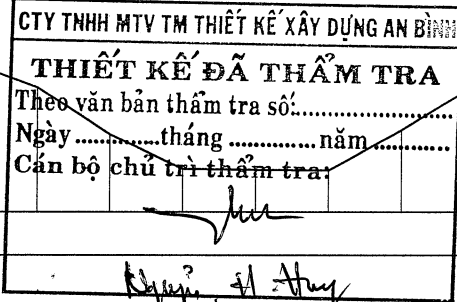 CTY TNHH MTV TM THIẾT KẾ XÂY DỰNG AN BÌNH
THIẾT KẾ ĐÃ THẨM TRA
Theo văn bản thẩm tra số:......................
Ngày.............tháng.............năm............
Cán bộ chủ trì thẩm tra:
Huy